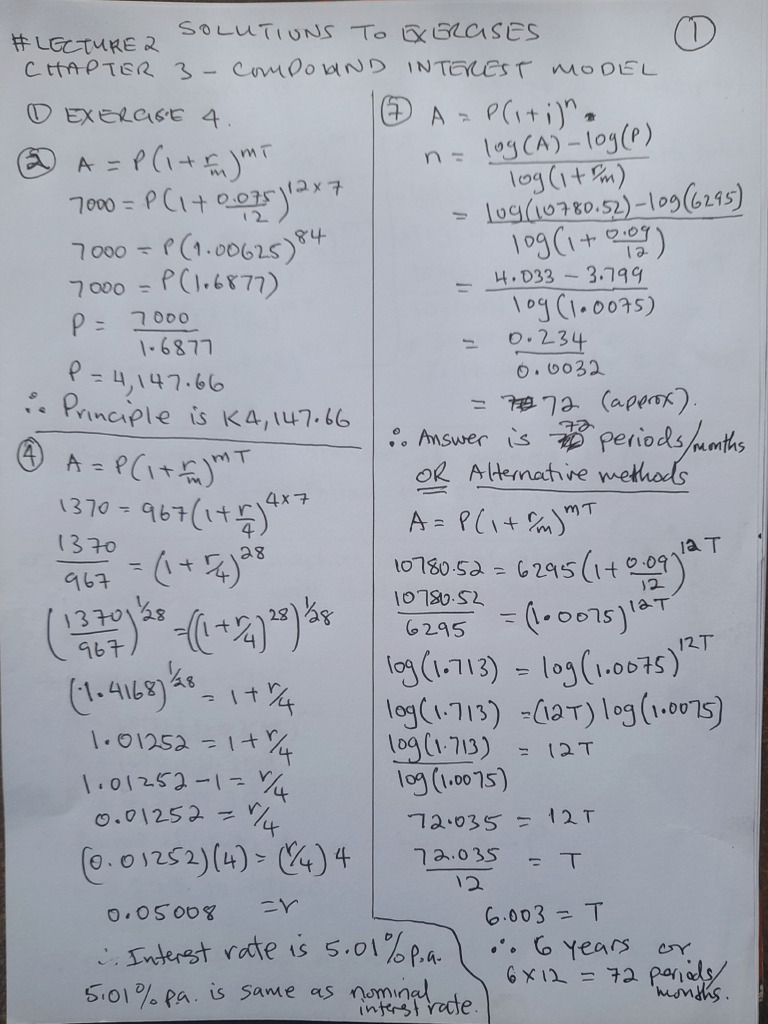 SOLUTIONS TO EXERCISES
①
#LECTURE 2
CHAPTER 3 - COMPOUND INTEREST MODEL
① EXERCISE 4.
② A = P(1 + r/m)^mT
7000 = P(1 + 0.075/12)^12×7
7000 = P(1.00625)^84
7000 = P(1.6877)
P = 7000/1.6877
P = 4,147.66
∴ Principle is K4,147.66
④ A = P(1 + r/m)^mT
1370 = 967(1 + r/4)^4×7
1370/967 = (1 + r/4)^28
(1370/967)^1/28 = ((1 + r/4)^28)^1/28
(1.4168)^1/28 = 1 + r/4
1.01252 = 1 + r/4
1.01252 - 1 = r/4
0.01252 = r/4
(0.01252)(4) = (r/4)4
0.05008 = r
∴ Interest rate is 5.01% p.a.
5.01% p.a. is same as nominal
interest rate.
⑦ A = P(1+i)^n.
n = log(A) - log(P)/log(1 + r/m)
= log(10780.52) - log(6295)/log(1 + 0.09/12)
= 4.033 - 3.799/log(1.0075)
= 0.234/0.0032
= 72 (approx).
∴ Answer is 72 periods/months
OR Alternative methods
A = P(1 + r/m)^mT
10780.52 = 6295(1 + 0.09/12)^12T
10780.52/6295 = (1.0075)^12T
log(1.713) = log(1.0075)^12T
log(1.713) = (12T) log(1.0075)
log(1.713)/log(1.0075) = 12T
72.035 = 12T
72.035/12 = T
6.003 = T
∴ 6 years or
6 × 12 = 72 periods/
months.